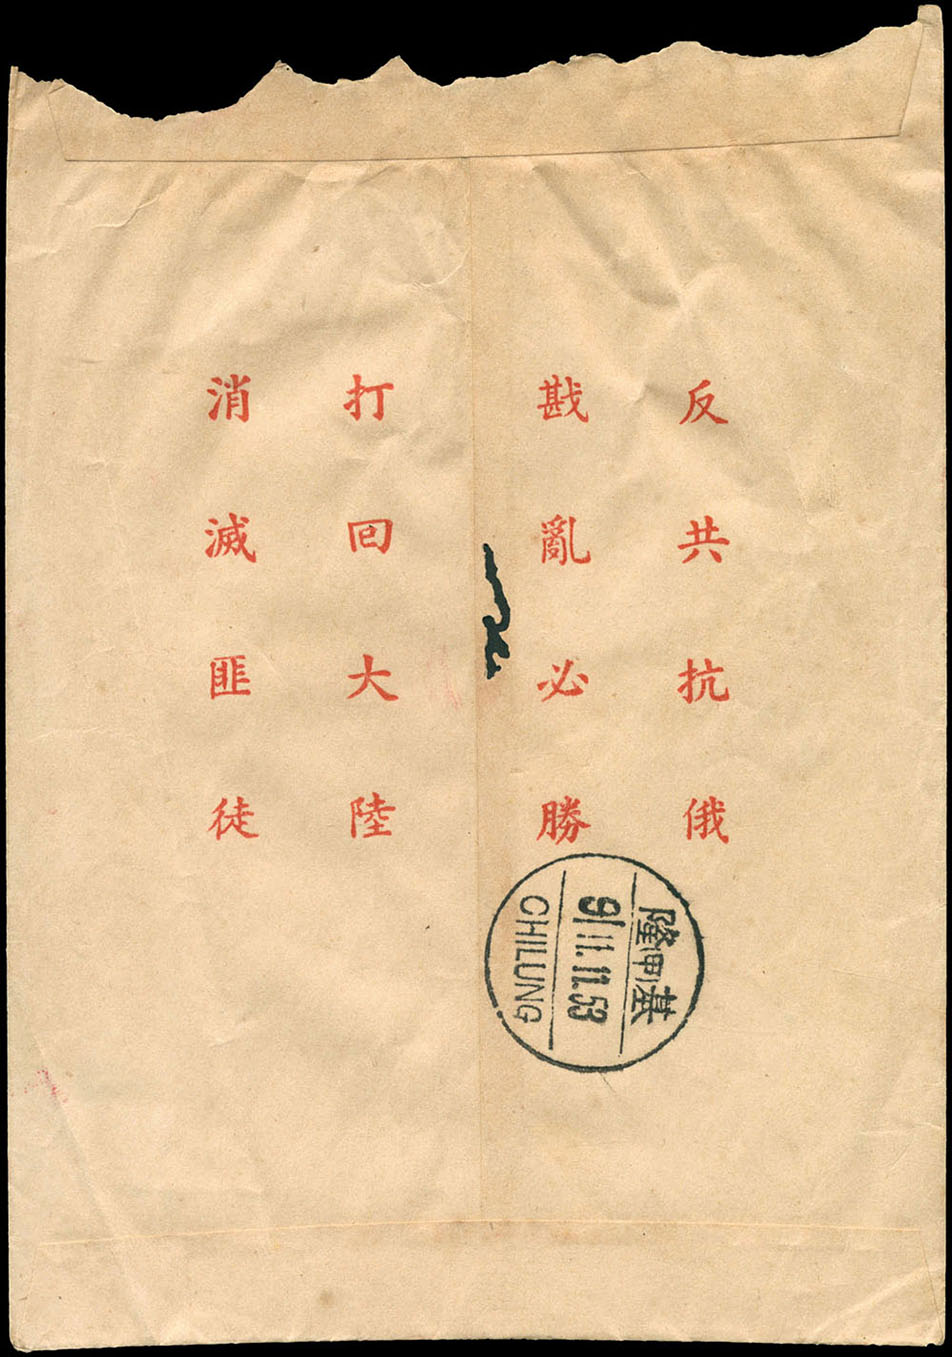 反共抗俄
戡亂必勝
打回大陸
消滅匪徒
基(甲)隆
9/11.11.53
CHILUNG